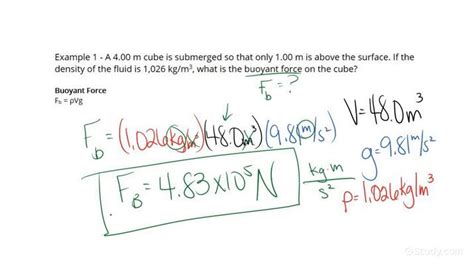 Example 1 - A 4.00 m cube is submerged so that only 1.00 m is above the surface. If the
density of the fluid is 1,026 kg/m³, what is the buoyant force on the cube?
Buoyant Force
F_b = ρVg
F_b = ?
F_b = (1,026 kg/m³)(48.0 m³)(9.81 m/s²)
F_B = 4.83 x 10⁵ N
kg·m/s²
V = 48.0 m³
g = 9.81 m/s²
ρ = 1,026 kg/m³
Study.com